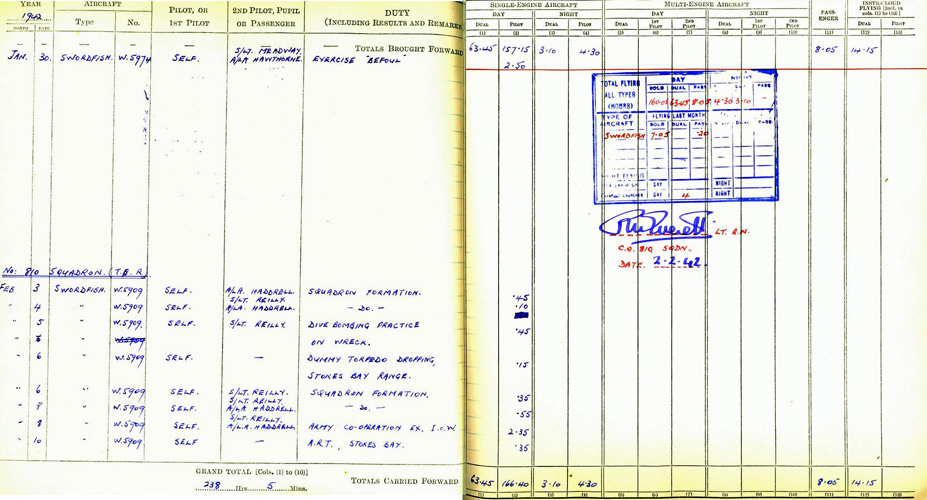 YEAR AIRCRAFT PILOT, OR 2ND PILOT, PUPIL DUTY
1942 Type No. 1ST PILOT OR PASSENGER (INCLUDING RESULTS AND REMARKS
MONTH DATE
— — — — — — TOTALS BROUGHT FORWARD
S/LT. MEADWAY.
JAN. 30. SWORDFISH. W.5974 SELF. A/LA HAWTHORNE. EXERCISE "BEFOUL"
No: 810 SQUADRON. (T.B.R)
FEB 3 SWORDFISH. W.5909 SELF. A/LA. HADDRELL. SQUADRON FORMATION.
S/LT. REILLY.
" 4 " W.5909 SELF. A/LA. HADDRELL. — DO. —
" 5 " W.5909. SELF. S/LT. REILLY. DIVE BOMBING PRACTICE
" 6 " W.5909 ON WRECK.
" 6 " W.5909 SELF. — DUMMY TORPEDO DROPPING,
STOKES BAY RANGE.
" 6 " W.5909. SELF. S/LT. REILLY. SQUADRON FORMATION.
S/LT. REILLY.
" 8 " W.5909 SELF. A/LA HADDRELL. — DO. —
S/LT. REILLY.
" 8 " W.5909 SELF. A/L.A. HADDRELL. ARMY CO-OPERATION EX. I.O.W
" 10 " W.5909 SELF — A.R.T., STOKES BAY.
GRAND TOTAL [Cols. (1) to (10)]
238 Hrs. 5 Mins. TOTALS CARRIED FORWARD
SINGLE-ENGINE AIRCRAFT MULTI-ENGINE AIRCRAFT PASS- INSTR/CLOUD
DAY NIGHT DAY NIGHT ENGER FLYING [Incl. in
cols. (1) to (10)]
DUAL PILOT DUAL PILOT DUAL 1ST PILOT 2ND PILOT DUAL 1ST PILOT 2ND PILOT DUAL PILOT
(1) (2) (3) (4) (5) (6) (7) (8) (9) (10) (11) (12) (13)
63.45 157.15 3.10 4.30 8.05 14.15
2.50
TOTAL FLYING DAY
ALL TYPES SOLO DUAL PASS PASS
(HOURS) 160.05 63.45 8.05 4.30 3.10
TYPE OF FLYING LAST MONTH
AIRCRAFT SOLO DUAL PASS SOLO DUAL PASS
SWORDFISH 7.05 .20
DAY NIGHT
DAY 4 NIGHT
LT. R.N.
C.O. 810 SQDN.
DATE. 2-2-42
.45
.10
.45
.15
.35
.55
2.35
.35
63.45 166.40 3.10 4.30 8.05 14.15
(1) (2) (3) (4) (5) (6) (7) (8) (9) (10) (11) (12) (13)